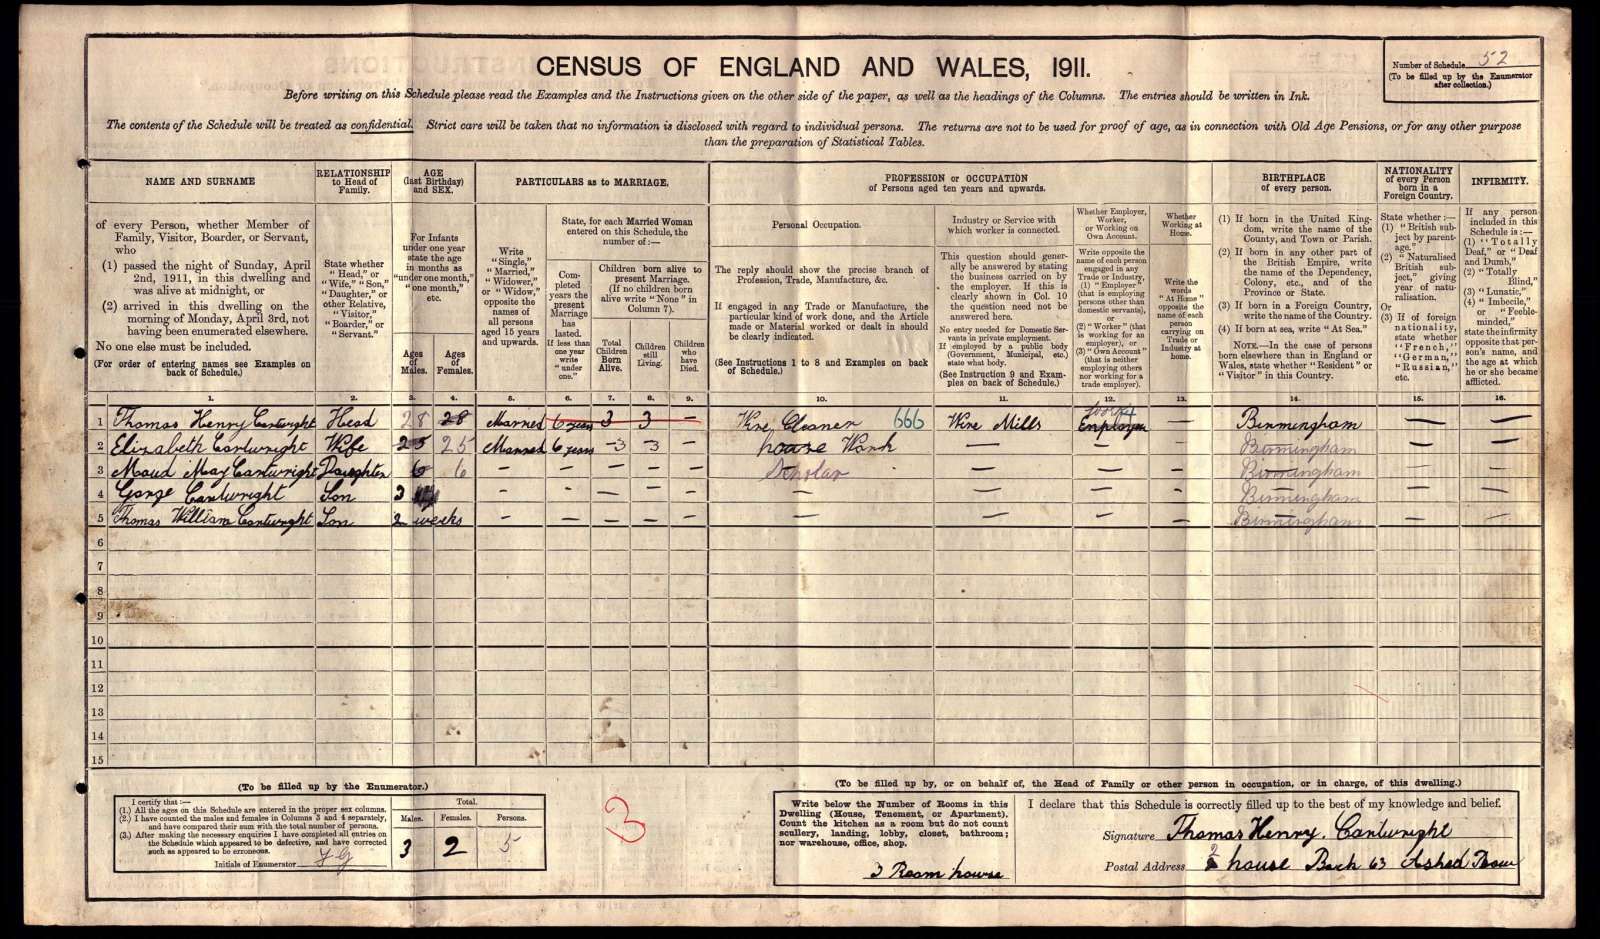 CENSUS OF ENGLAND AND WALES, 1911.
Number of Schedule 52
(To be filled up by the Enumerator
after collection.)
Before writing on this Schedule please read the Examples and the Instructions given on the other side of the paper, as well as the headings of the Columns. The entries should be written in Ink.
The contents of the Schedule will be treated as confidential. Strict care will be taken that no information is disclosed with regard to individual persons. The returns are not to be used for proof of age, as in connection with Old Age Pensions, or for any other purpose
than the preparation of Statistical Tables.
NAME AND SURNAME
of every Person, whether Member of
Family, Visitor, Boarder, or Servant,
who
(1) passed the night of Sunday, April
2nd, 1911, in this dwelling and
was alive at midnight, or
(2) arrived in this dwelling on the
morning of Monday, April 3rd, not
having been enumerated elsewhere.
No one else must be included.
(For order of entering names see Examples on
back of Schedule.)
RELATIONSHIP
to Head of
Family.
State whether
"Head," or
"Wife," "Son,"
"Daughter," or
other Relative,
"Visitor,"
"Boarder," or
"Servant."
AGE
(last Birthday)
and SEX.
For Infants
under one year
state the age
in months as
"under one month,"
"one month,"
etc.
Ages
of
Males.
Ages
of
Females.
PARTICULARS as to MARRIAGE.
Write
"Single,"
"Married,"
"Widower,"
or "Widow,"
opposite the
names of
all persons
aged 15 years
and upwards.
State, for each Married Woman
entered on this Schedule, the
number of:—
Completed
years the
present
Marriage
has
lasted.
If less than
one year
write
"under
one."
Children born alive to
present Marriage.
(If no children born
alive write "None" in
Column 7).
Total
Children
Born
Alive.
Children
still
Living.
Children
who
have
Died.
PROFESSION or OCCUPATION
of Persons aged ten years and upwards.
Personal Occupation.
The reply should show the precise branch of
Profession, Trade, Manufacture, &c.
If engaged in any Trade or Manufacture, the
particular kind of work done, and the Article
made or Material worked or dealt in should
be clearly indicated.
(See Instructions 1 to 8 and Examples on back
of Schedule.)
Industry or Service with
which worker is connected.
This question should generally be answered by stating
the business carried on by
the employer. If this is
clearly shown in Col. 10
the question need not be
answered here.
No entry needed for Domestic Servants in private employment.
If employed by a public body
(Government, Municipal, etc.)
state what body.
(See Instruction 9 and Examples on back of Schedule.)
Whether Employer,
Worker,
or Working on
Own Account.
Write opposite the
name of each person
engaged in any
Trade or Industry,
(1) "Employer"
(that is employing
persons other than
domestic servants),
or
(2) "Worker" (that
is working for an
employer), or
(3) "Own Account"
(that is neither
employing others
nor working for a
trade employer).
Whether
Working at
Home.
Write the
words
"At Home"
opposite the
name of each
person
carrying on
Trade or
Industry at
home.
BIRTHPLACE
of every person.
(1) If born in the United Kingdom, write the name of the
County, and Town or Parish.
(2) If born in any other part of
the British Empire, write
the name of the Dependency,
Colony, etc., and of the
Province or State.
(3) If born in a Foreign Country,
write the name of the Country.
(4) If born at sea, write "At Sea."
NOTE.—In the case of persons
born elsewhere than in England or
Wales, state whether "Resident" or
"Visitor" in this Country.
NATIONALITY
of every Person
born in a
Foreign Country.
State whether:—
(1) "British subject by parentage."
(2) "Naturalised
British
subject," giving
year of naturalisation.
Or
(3) If of foreign
nationality,
state whether
"French,"
"German,"
"Russian,"
etc.
INFIRMITY.
If any person
included in this
Schedule is:—
(1) "Totally
Deaf," or "Deaf
and Dumb,"
(2) "Totally
Blind,"
(3) "Lunatic,"
(4) "Imbecile,"
or "Feebleminded,"
state the infirmity
opposite that person's name, and
the age at which
he or she became
afflicted.
1. 2. 3. 4. 5. 6. 7. 8. 9. 10. 11. 12. 13. 14. 15. 16.
1 Thomas Henry Cartwright Head 28 28 Married 6 years 3 3 — Wire Cleaner 666 Wire Mills Employee — Birmingham — —
2 Elizabeth Cartwright Wife 25 25 Married 6 years 3 3 — house Work — — — Birmingham — —
3 Maud May Cartwright Daughter 6 6 — — — — — Scholar — — — Birmingham — —
4 Gorge Cartwright Son 3 — — — — — — — — — Birmingham — —
5 Thomas William Cartwright Son 2 weeks — — — — — — — — — Birmingham — —
6
7
8
9
10
11
12
13
14
15
(To be filled up by the Enumerator.)
I certify that:—
(1.) All the ages on this Schedule are entered in the proper sex columns.
(2.) I have counted the males and females in Columns 3 and 4 separately,
and have compared their sum with the total number of persons.
(3.) After making the necessary enquiries I have completed all entries on
the Schedule which appeared to be defective, and have corrected
such as appeared to be erroneous.
Initials of Enumerator
Total.
Males. Females. Persons.
3 2 5
3
(To be filled up by, or on behalf of, the Head of Family or other person in occupation, or in charge, of this dwelling.)
Write below the Number of Rooms in this
Dwelling (House, Tenement, or Apartment).
Count the kitchen as a room but do not count
scullery, landing, lobby, closet, bathroom;
nor warehouse, office, shop.
3 Room house
I declare that this Schedule is correctly filled up to the best of my knowledge and belief.
Signature Thomas Henry. Cartwright
Postal Address 2 house Back 63 Ashed Row